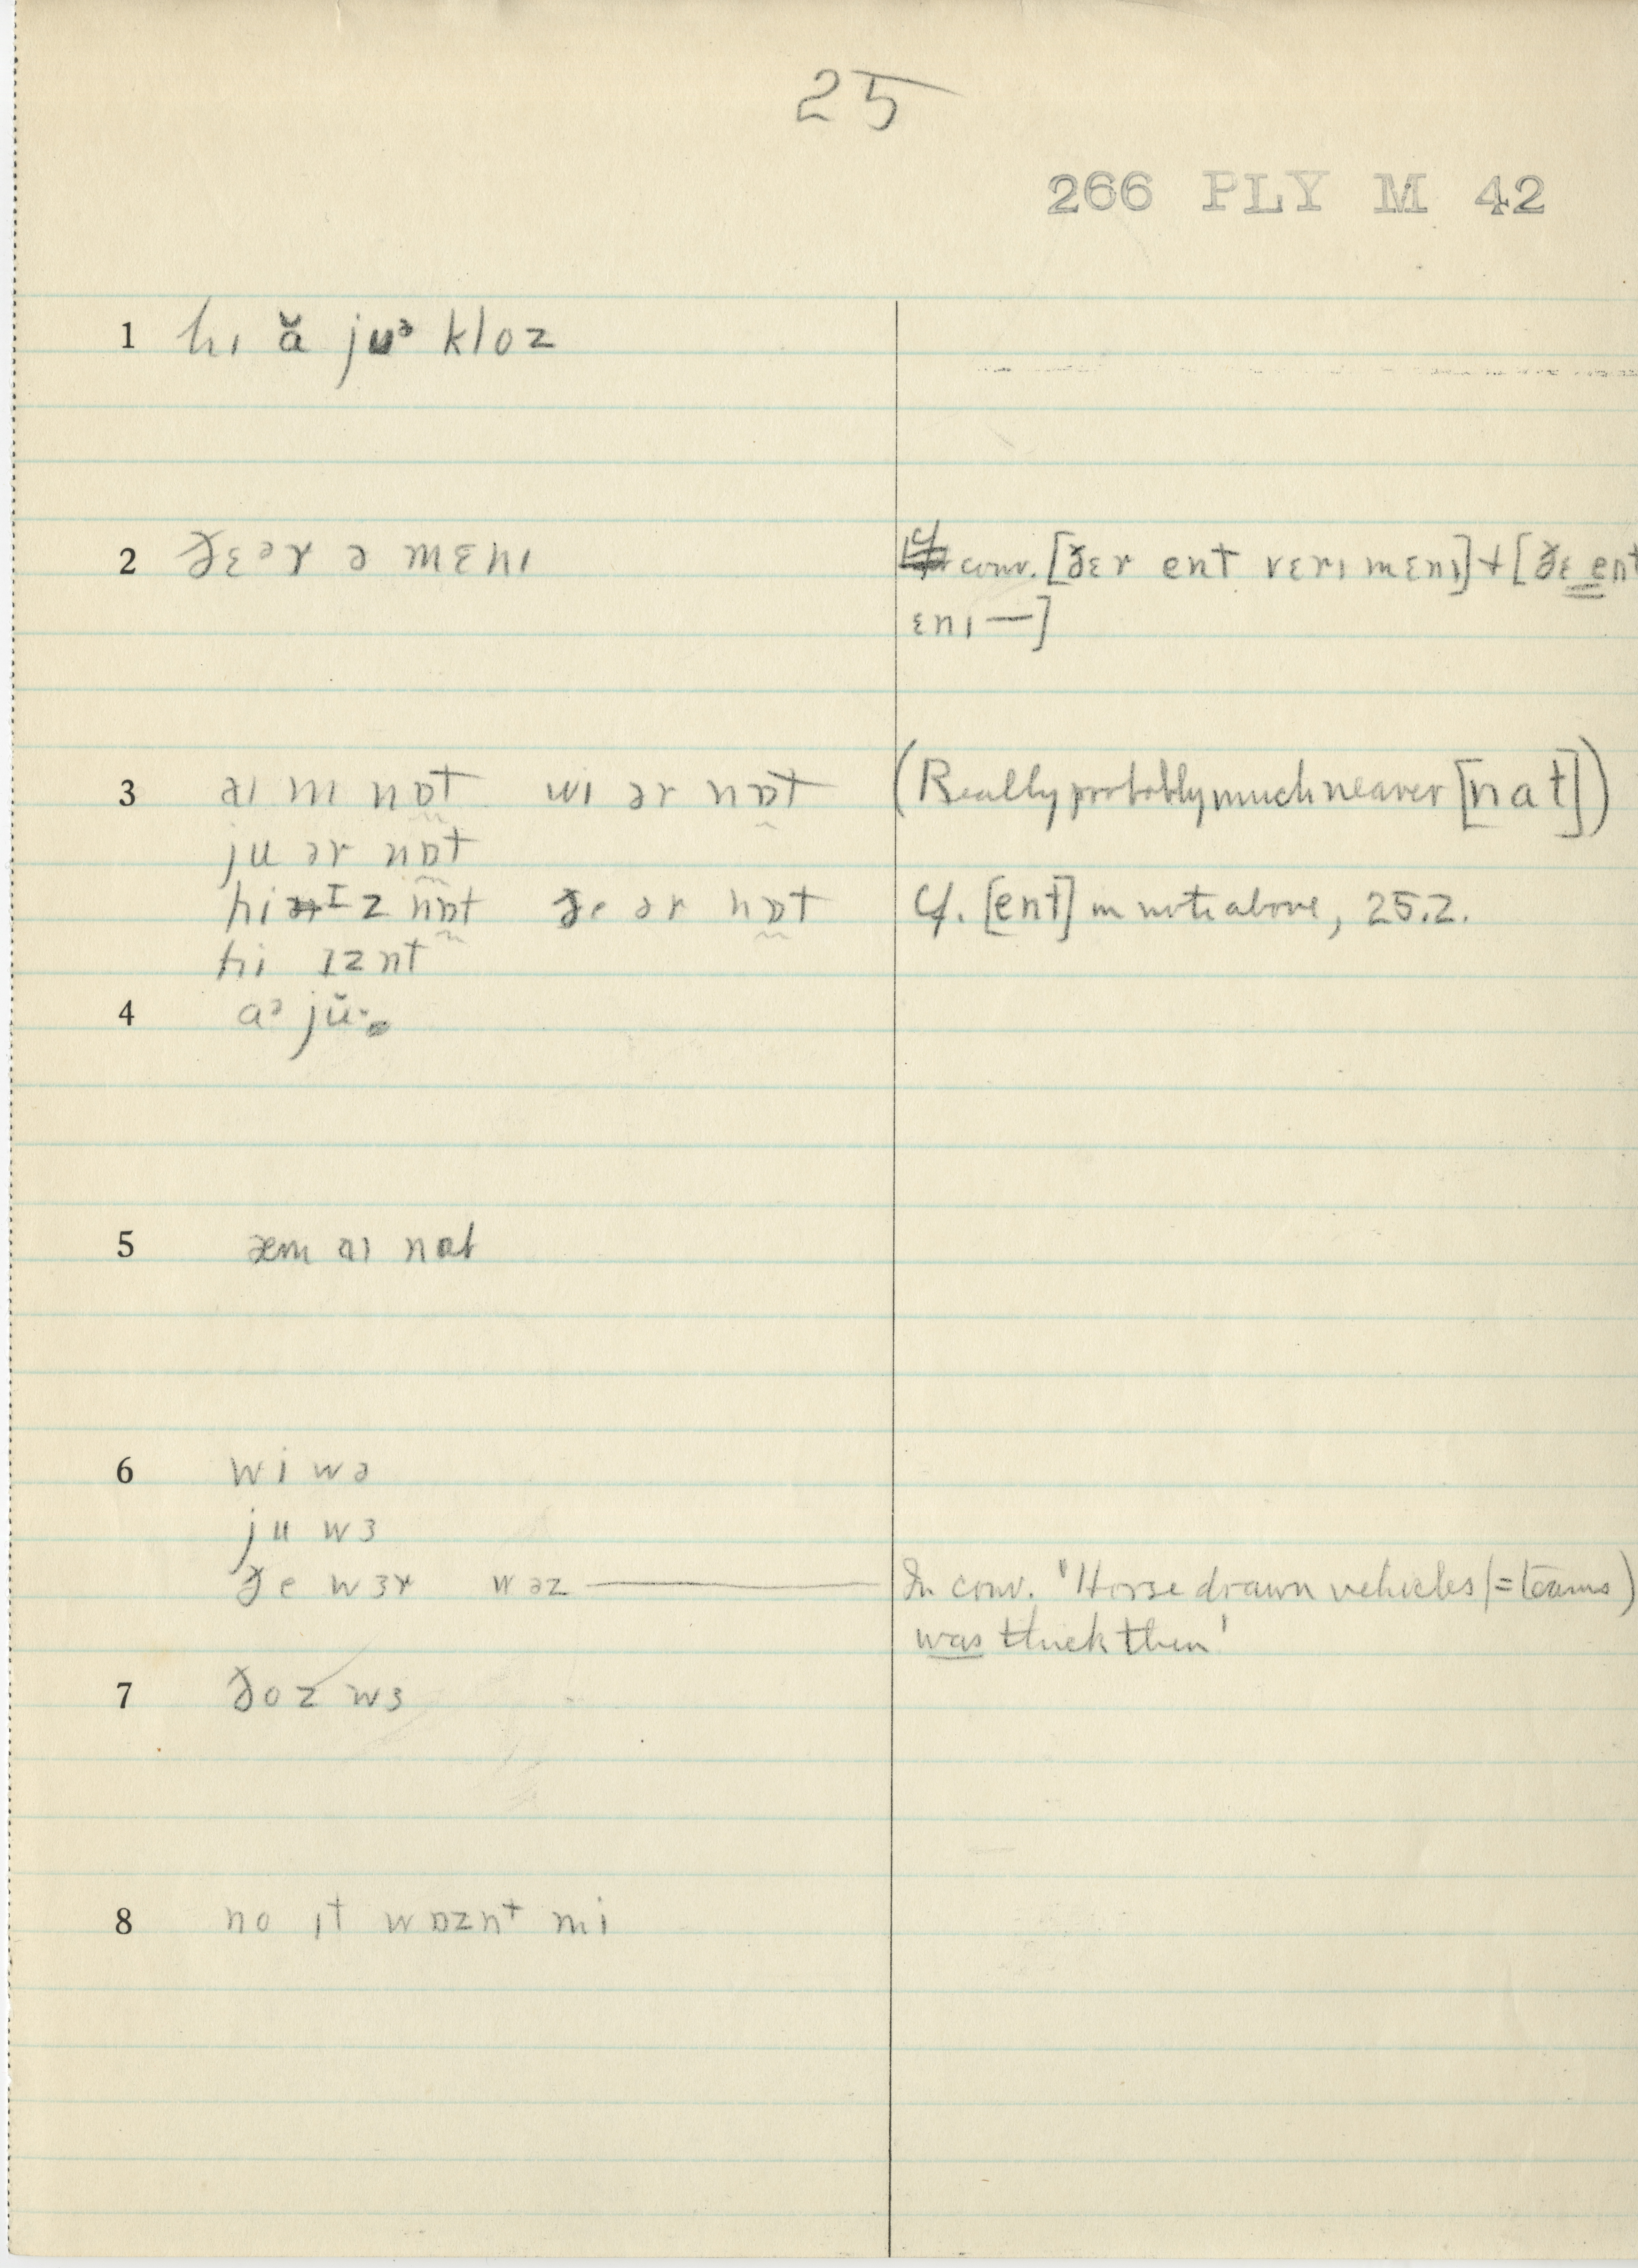 25
266 PLY M 42
1 hɪ ă juᵊ kloz
2 ðɛᵊr ə mɛnɪ
cf. conv. [ðɛr ent vɛrɪ mɛnɪ] + [ðɛ ent
ɛnɪ —]
3 aɪ m nɒt wɪ ər nɒt (Really probably much nearer [nat])
ju ər nɒt
hi ɪz nɒt ðe ər nɒt Cf. [ent] in note above, 25.2.
hi ɪznt
4 aᵊ jŭ·
5 æm aɪ nɑt
6 wi wə
ju wɜ
ðe wɜr wəz — In conv. "Horse drawn vehicles (=teams)
was thick then'
7 ðoz wɜ
8 no ɪt wɒznt mi